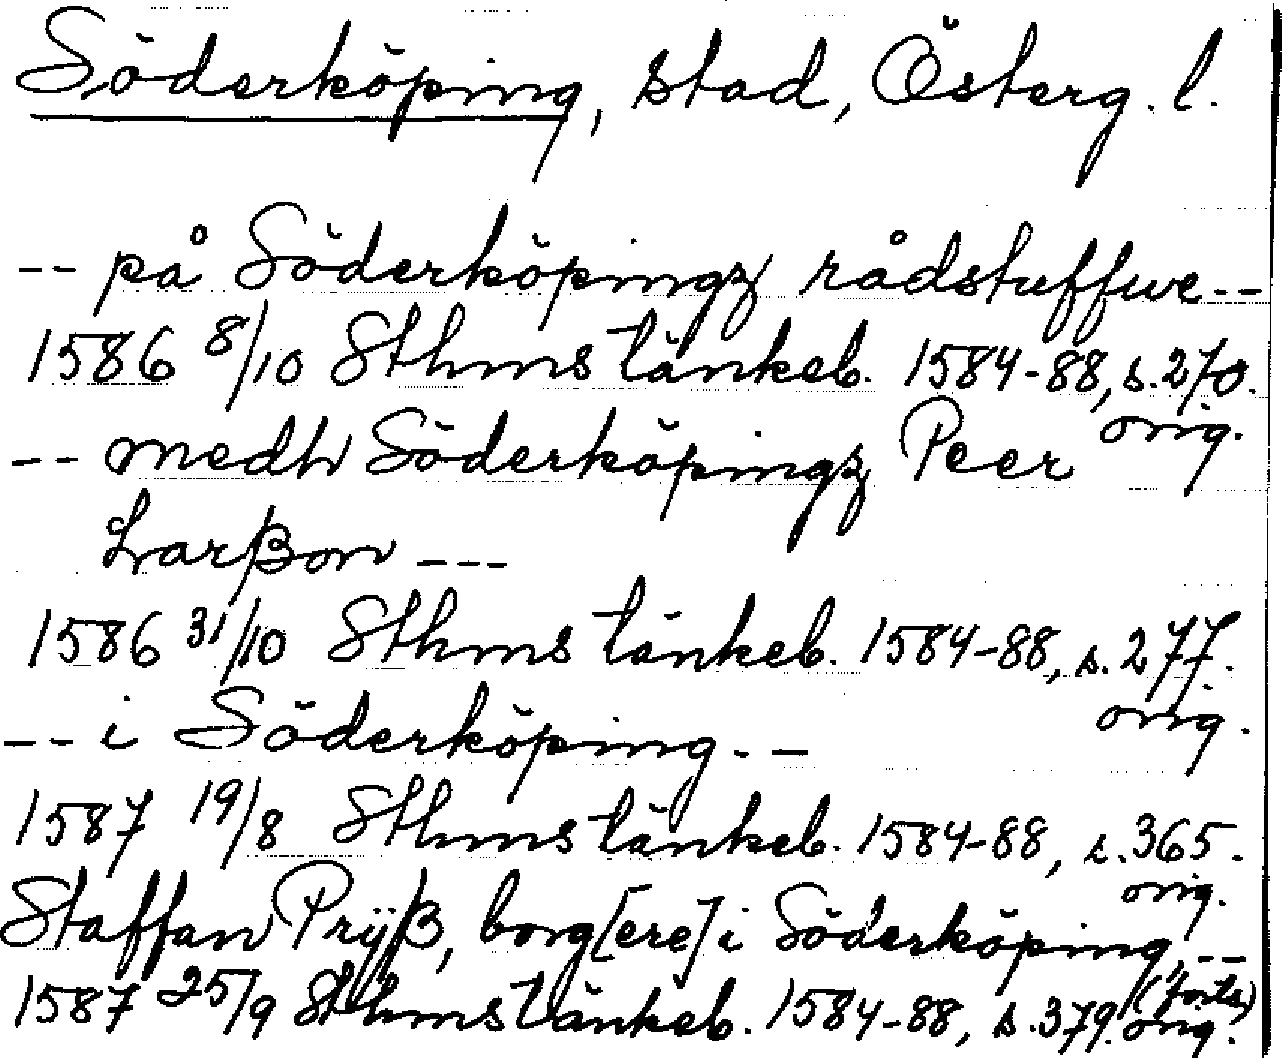 Söderköping, stad, Österg. l.
-- på Söderköpingz rådstuffwe --
1586 8/10 Sthms tänkeb. 1584-88, s. 270.
orig.
-- medh Söderköpingz Peer
Larßon ---
1586 31/10 Sthms tänkeb. 1584-88, s. 277.
orig.
-- i Söderköping. --
1587 19/8 Sthms tänkeb. 1584-88, s. 365.
orig.
Staffan Prÿß, borg[ere] i Söderköping, --
1587 25/9 Sthms tänkeb. 1584-88, s. 379. orig.
(forts)